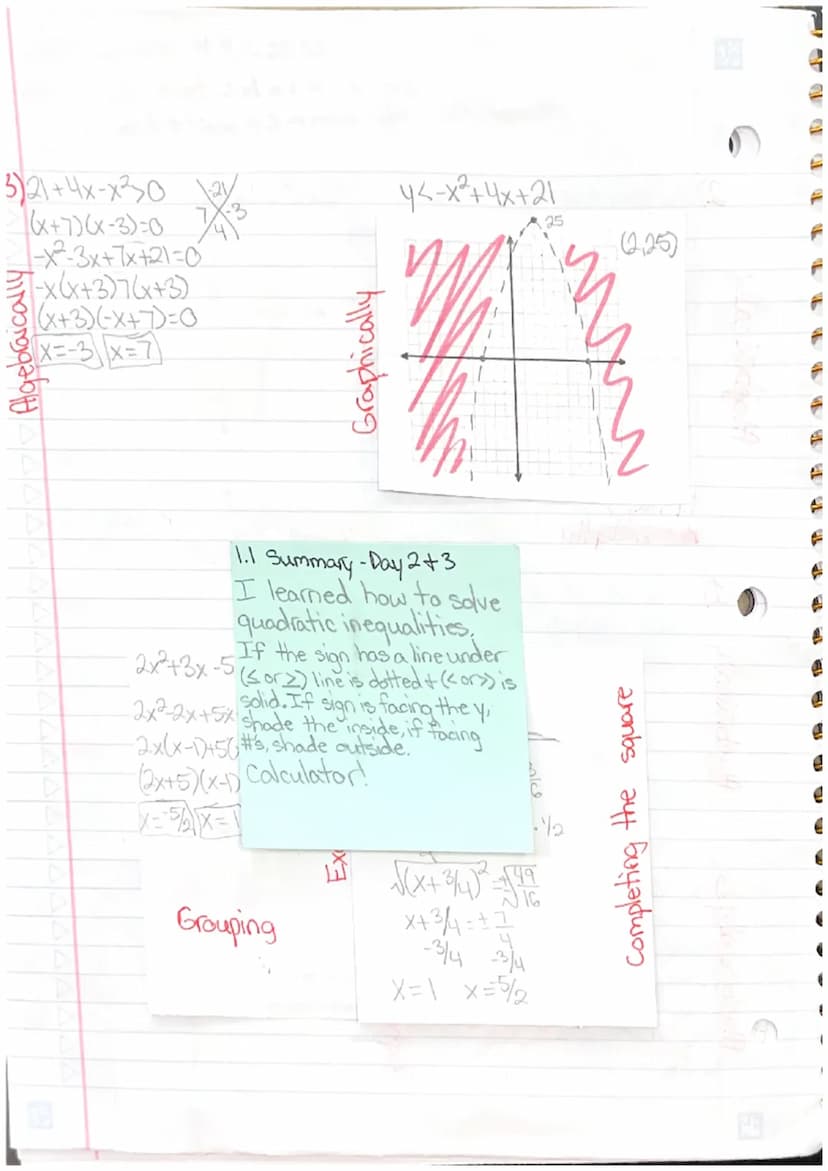 3) 21+4x-x²>0
-21
7 -3
4
(x+7)(x-3)=0
-x²-3x+7x+21=0
-x(x+3)7(x+3)
(x+3)(-x+7)=0
x=-3 x=7
Algebraically
y<-x²+4x+21
25
(2,25)
Graphically
1.1 Summary-Day 2+3
I learned how to solve
quadratic inequalities.
If the sign has a line under
(≤ or ≥) line is dotted + (< or >) is
solid. If sign is facing the y,
shade the inside, if facing
#'s, shade outside.
Calculator!
2x²+3x-5
2x²-2x+5x
2x(x-1)+5(
(2x+5)(x-1)
x=-5/2 x=1
Grouping
Ex
·1/2
√(x+3/4)²=±√49/16
x+3/4=±7/4
-3/4 -3/4
x=1 x=-5/2
Completing the square